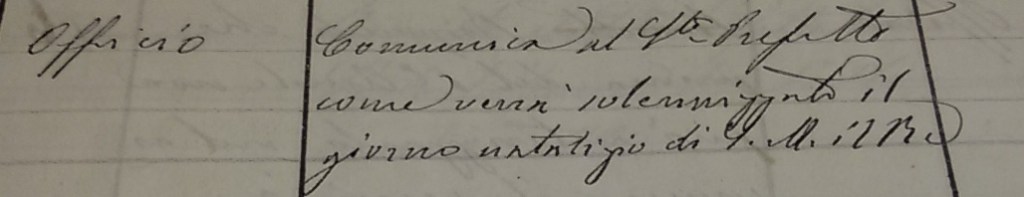 Officio Comunica al Sto Prefetto
come verrà solennizzato il
giorno natalizio di S. M. il Re